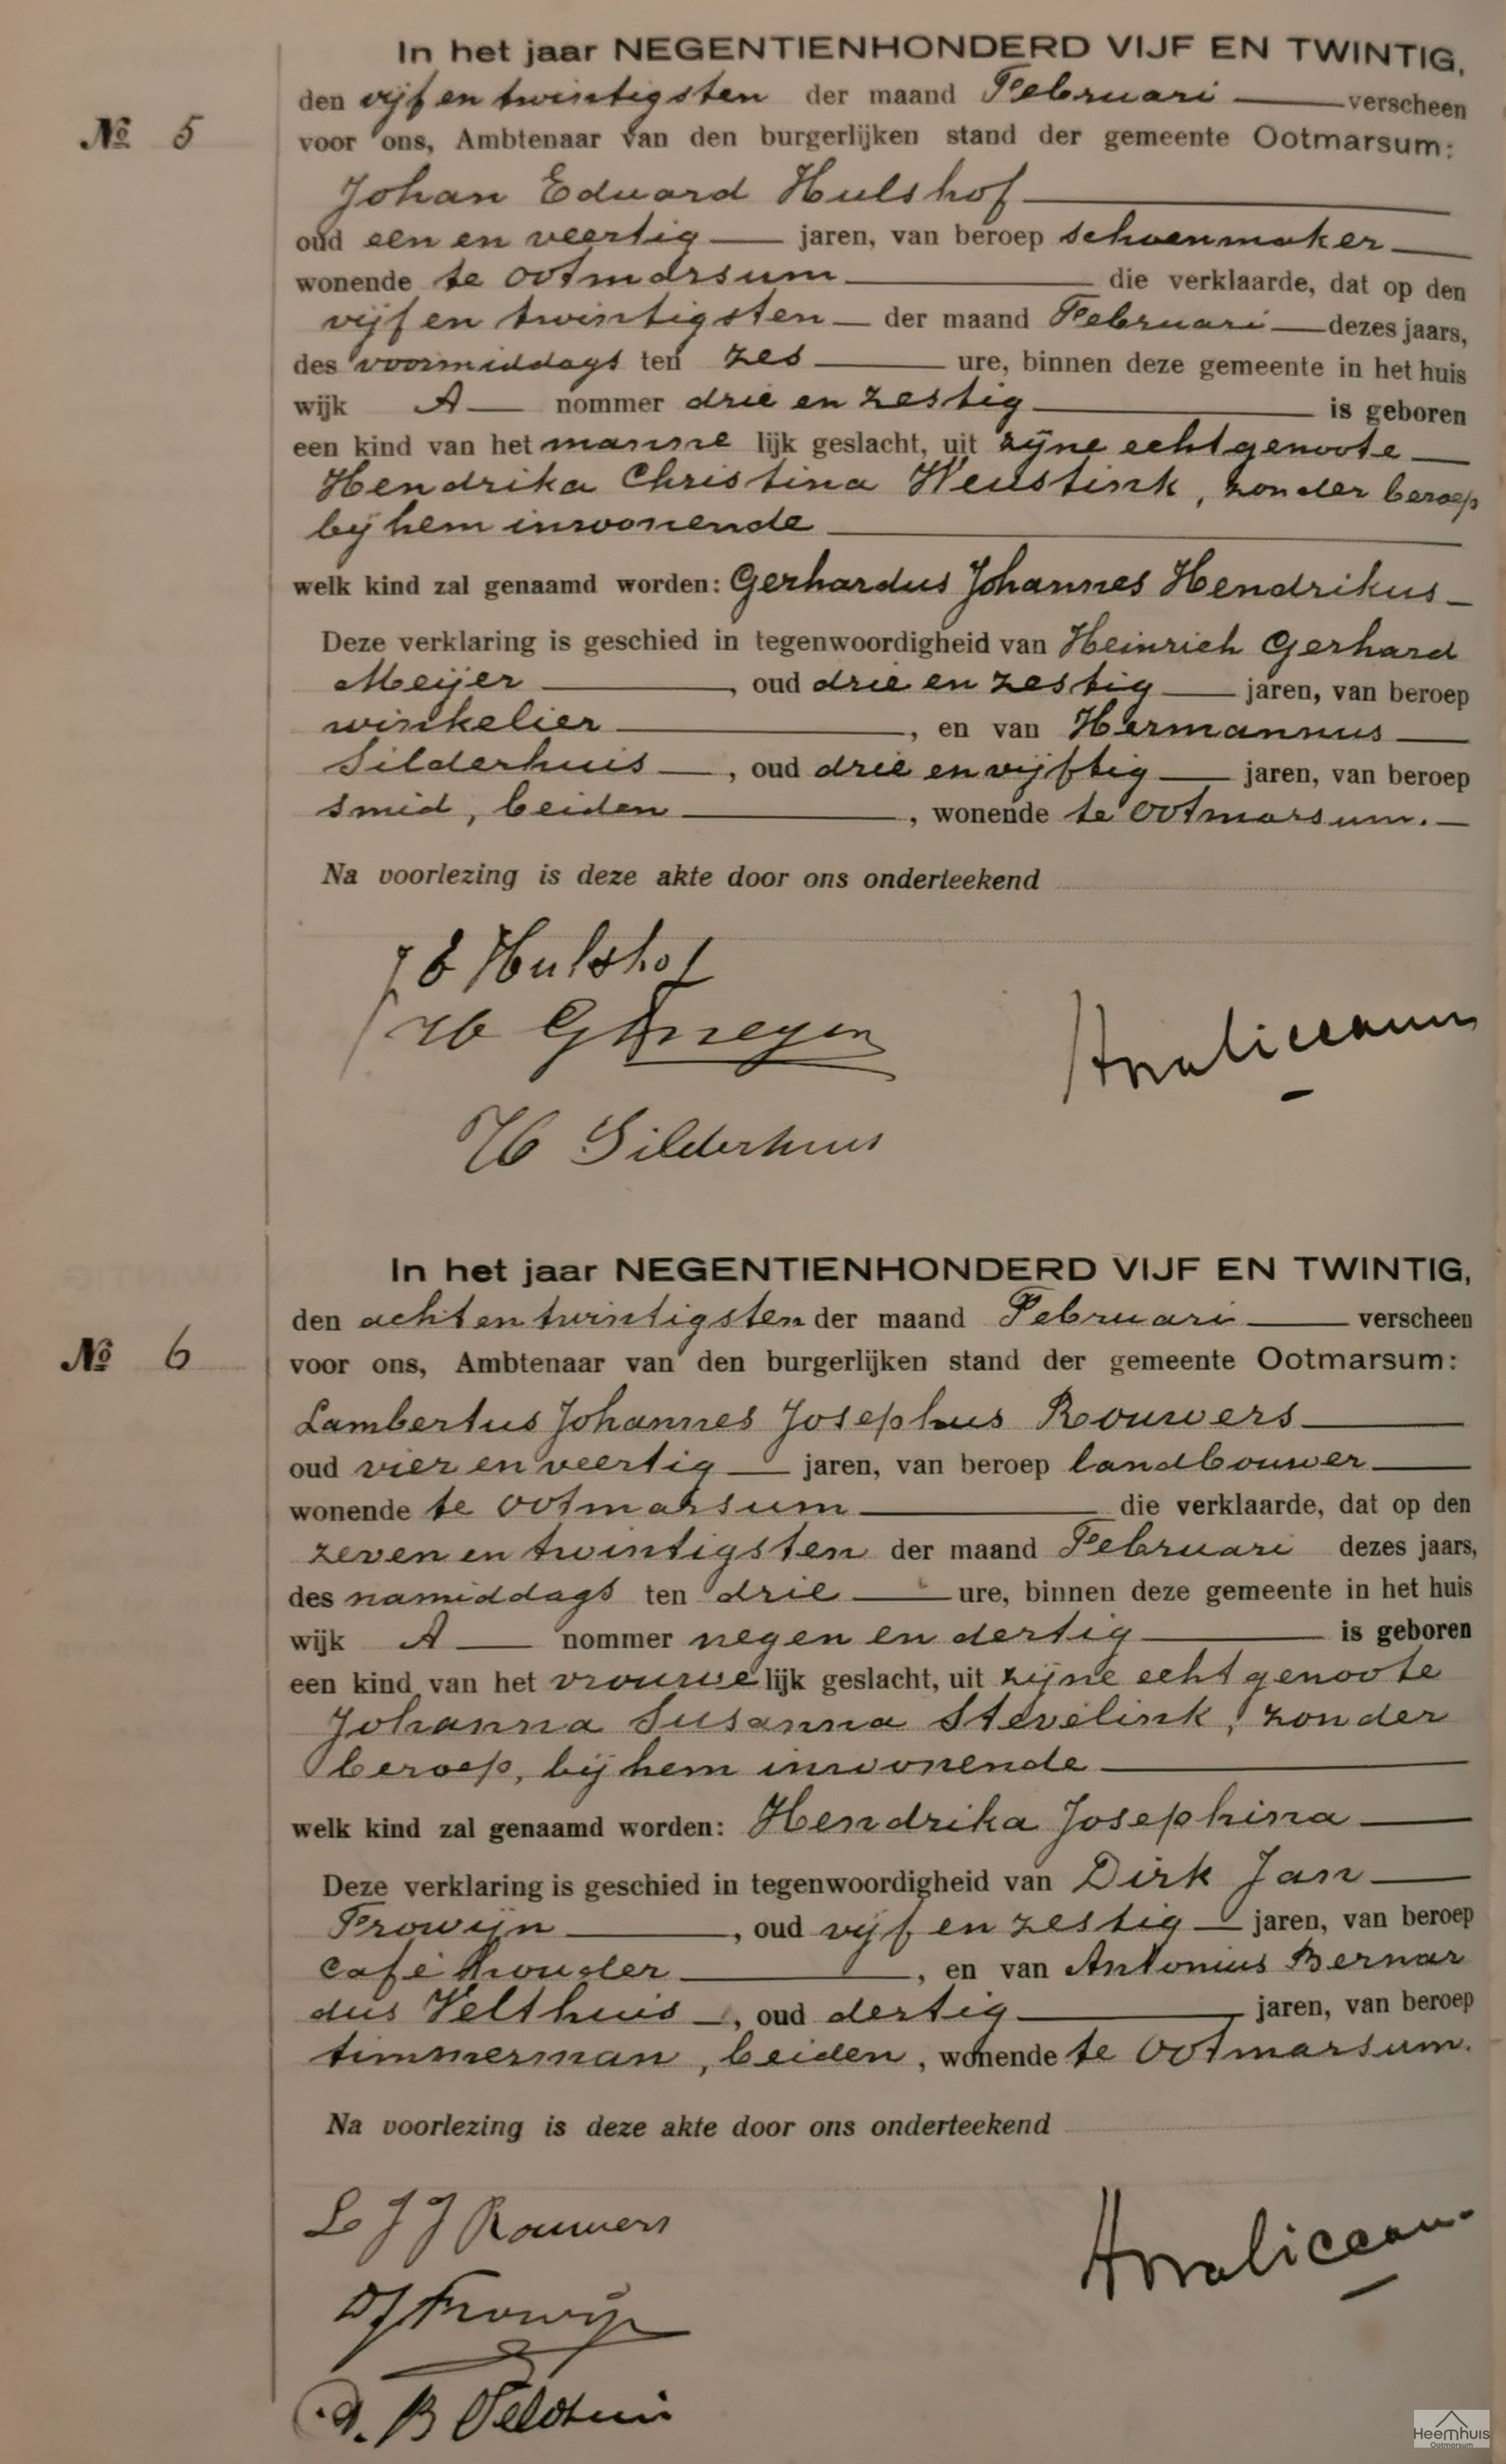 In het jaar NEGENTIENHONDERD VIJF EN TWINTIG,
den vijf en twintigsten der maand Februari verscheen
No 5
voor ons, Ambtenaar van den burgerlijken stand der gemeente Ootmarsum:
Johan Eduard Hulshof
oud een en veertig jaren, van beroep schoenmaker
wonende te Ootmarsum die verklaarde, dat op den
vijf en twintigsten der maand Februari dezes jaars,
des voormiddags ten zes ure, binnen deze gemeente in het huis
wijk A nommer drie en zestig is geboren
een kind van het mannelijk geslacht, uit zijne echtgenoote
Hendrika Christina Weustink, zonder beroep
bij hem inwonende
welk kind zal genaamd worden: Gerhardus Johannes Hendrikus
Deze verklaring is geschied in tegenwoordigheid van Heinrich Gerhard
Meijer, oud drie en zestig jaren, van beroep
winkelier, en van Hermannus
Silderhuis, oud drie en vijftig jaren, van beroep
smid, beiden, wonende te Ootmarsum.
Na voorlezing is deze akte door ons onderteekend
J E Hulshof
H G Meyer
H Silderhuis
In het jaar NEGENTIENHONDERD VIJF EN TWINTIG,
den acht en twintigsten der maand Februari verscheen
No 6
voor ons, Ambtenaar van den burgerlijken stand der gemeente Ootmarsum:
Lambertus Johannes Josephus Rouwers
oud vier en veertig jaren, van beroep landbouwer
wonende te Ootmarsum die verklaarde, dat op den
zeven en twintigsten der maand Februari dezes jaars,
des namiddags ten drie ure, binnen deze gemeente in het huis
wijk A nommer negen en dertig is geboren
een kind van het vrouwelijk geslacht, uit zijne echtgenoote
Johanna Susanna Stevelink, zonder
beroep, bij hem inwonende
welk kind zal genaamd worden: Hendrika Josephina
Deze verklaring is geschied in tegenwoordigheid van Dirk Jan
Frowijn, oud vijf en zestig jaren, van beroep
caféhouder, en van Antonius Bernar
dus Velthuis, oud dertig jaren, van beroep
timmerman, beiden, wonende te Ootmarsum.
Na voorlezing is deze akte door ons onderteekend
L J J Rouwers
DJ Frowijn
A. B Velthuis
Heemhuis
Ootmarsum